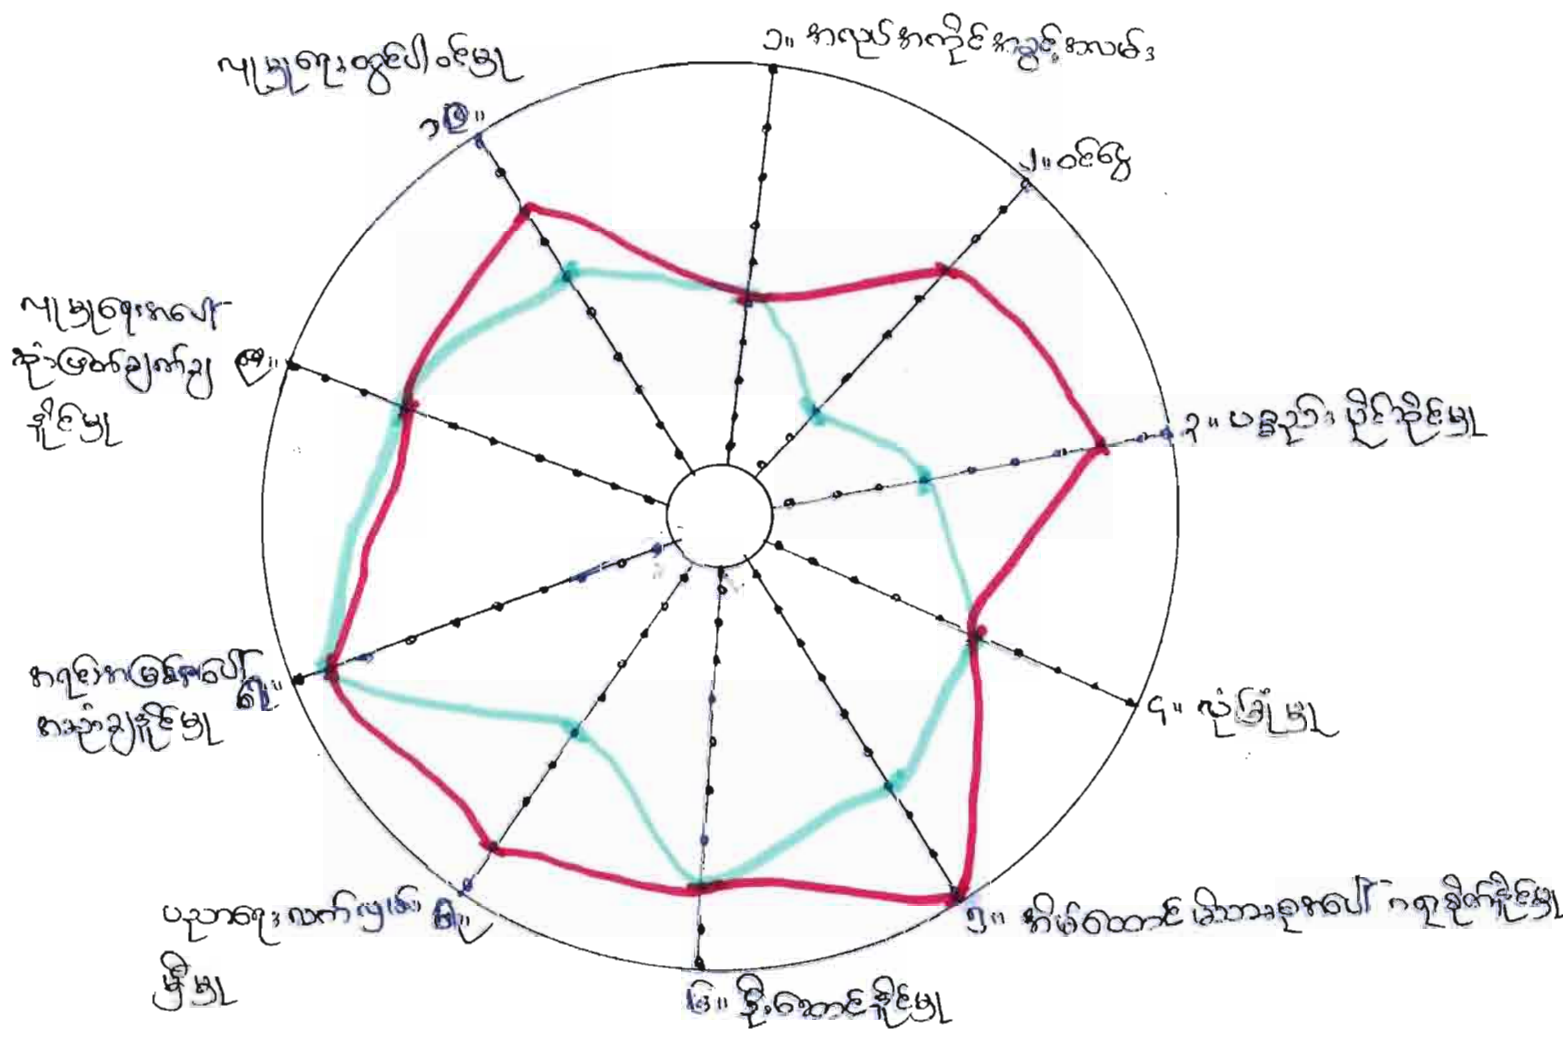 ၁။ အလုပ်အကိုင်အခွင့်အလမ်း
၂။ ဝင်ငွေ
၃။ ပစ္စည်း ပိုင်ဆိုင်မှု
၄။ လုံခြုံမှု
၅။ အိမ်ထောင် မိသားစုအပေါ် ဂရုစိုက်နိုင်မှု
၆။ ဦးဆောင်နိုင်မှု
ပညာရေး လက်လှမ်း
မှီမှု
အရင်းအမြစ်အပေါ်
အသုံးချနိုင်မှု
လူမှုရေးအပေါ်
ဆုံးဖြတ်ချက်ချ
နိုင်မှု
လူမှုရေးတွင်ပါဝင်မှု
၁၀။